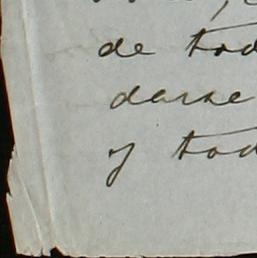 de tod
darse
y tod